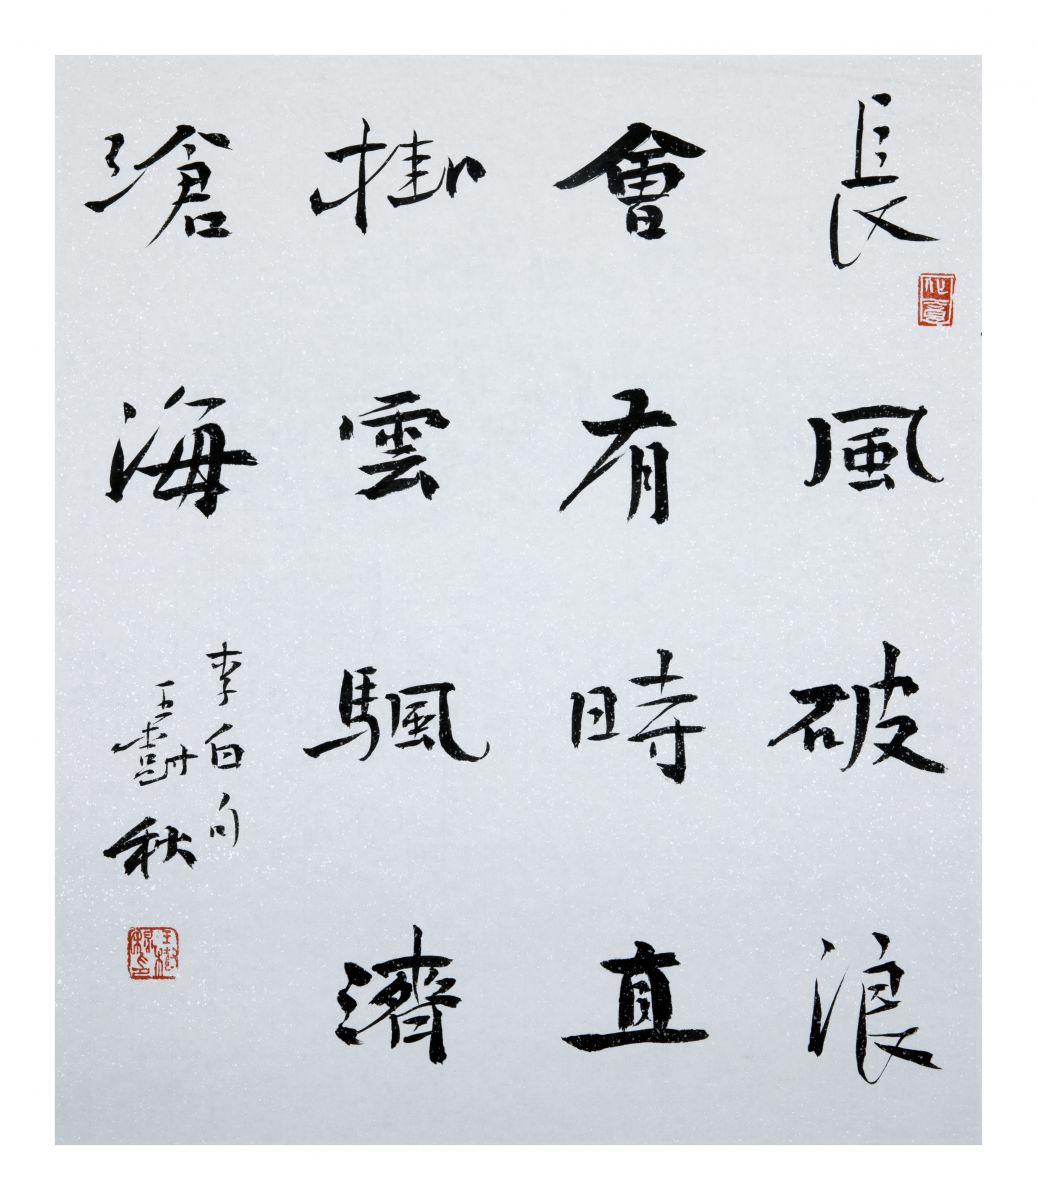 長風破浪
會有時直
掛雲颿濟
滄海
李白句
王樹秋